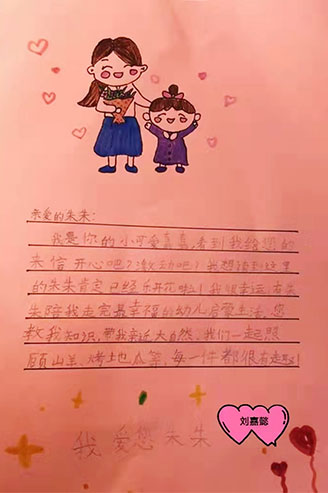 亲爱的朱朱:
我是你的小可爱嘉嘉,看到我给您的
来信开心吧?激动吧?我想读到这里
的朱朱肯定已经乐开花啦!我很幸运,有朱
朱陪我走完最幸福的幼儿启蒙生活,您
教我知识,带我亲近大自然,我们一起照
顾山羊、烤地瓜等,每一件都很有趣!
刘嘉懿
我爱您朱朱